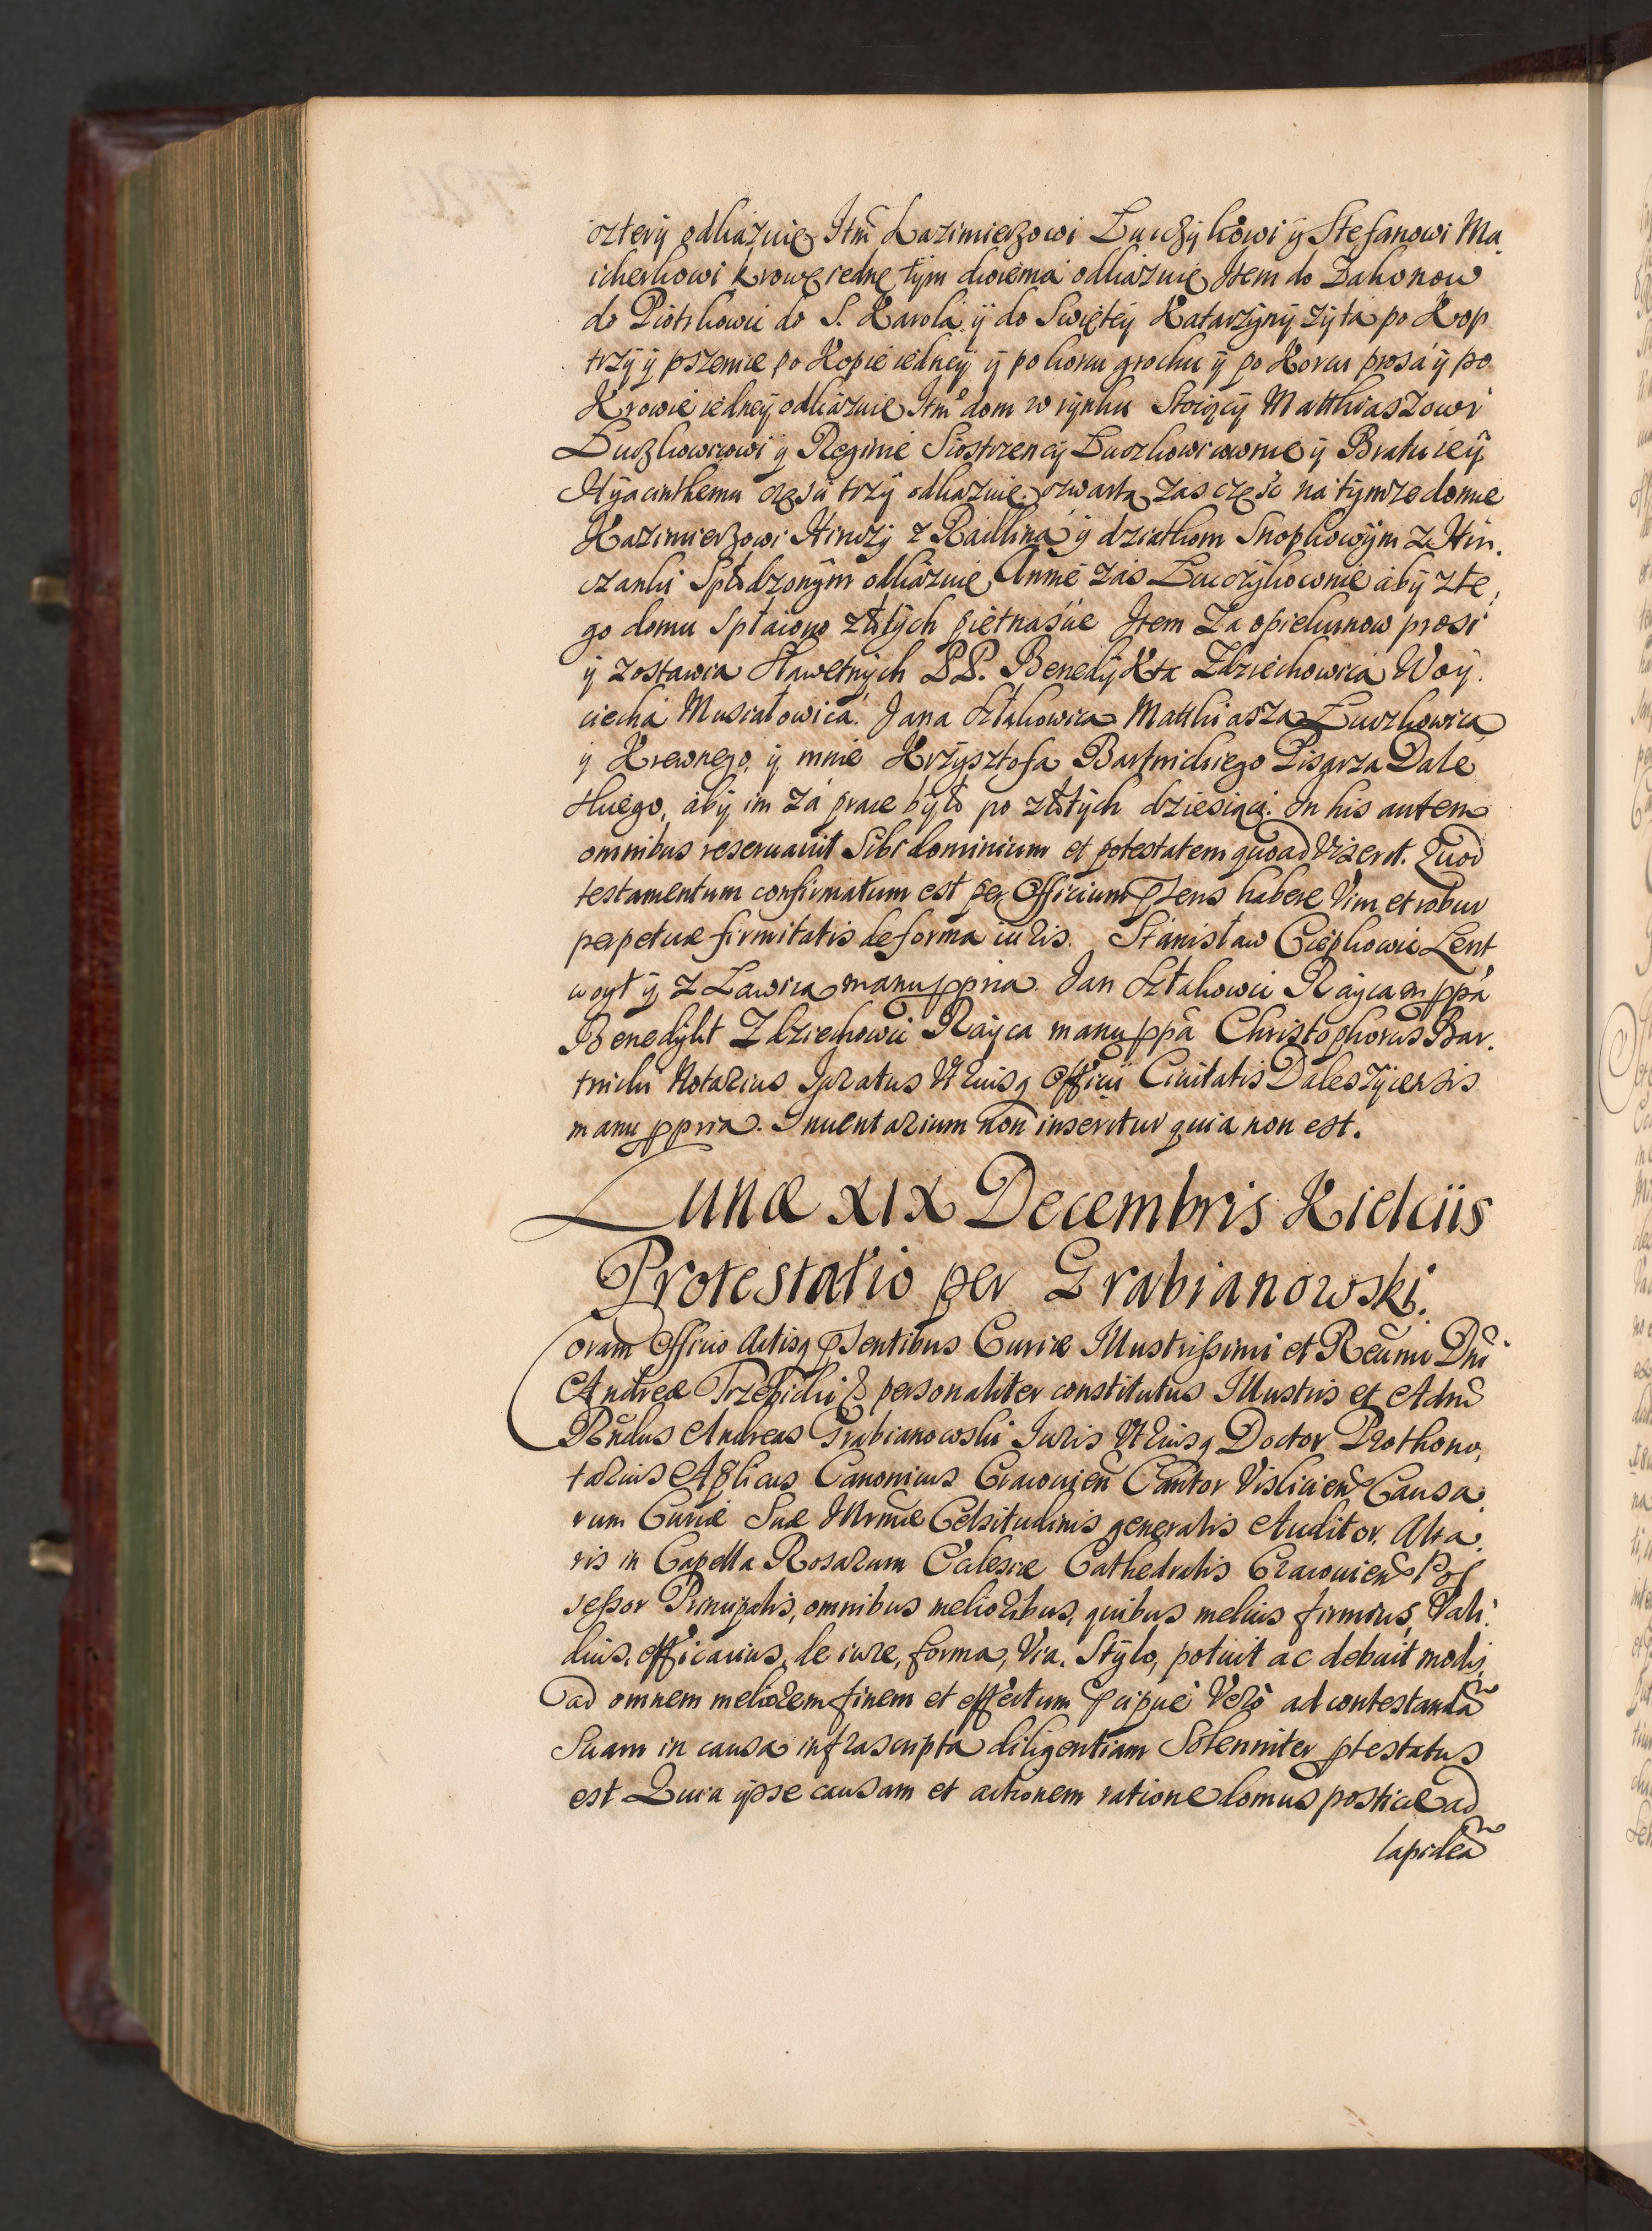 cztery odkázuię Itm̃ Kazimierzowi Łuczÿkowi ÿ Stefanowi Ma,
icherkowi krowę iednę tym dwiema odkázuię Item do Zakonow
do Piotrkowic do S. Karolá ÿ do Swiętey Katarzÿnÿ zÿta po Kop
trzÿ ÿ pszenice po Kopie iedneÿ ÿ po korcu grochu ÿ po Korcu prosá ÿ po
Krowie iedneÿ odkázuie Itm̃ dom w rÿnku stoiącÿ Matthiaszowi
Łuczkowicowi ÿ Reginie Siostrzencÿ Luczkowicownie ÿ Bratu ieÿ
Hÿacinthemu częsci trzÿ odkazuię. czwartą zas częśc na tÿmze domie
Kazimierzowi Hinczÿ z Radlina ÿ dziatkom Snopkowÿm z Hin,
czanki Spłodzonÿm odkázuie, Annie zás Łuczÿkownie abÿ z te,
go domu Spłacono złotÿch pietnascie Item Za opiekunow prosi
ÿ zostawia sławetnÿch PP. Benedÿkta Zdziechowica Woÿ,
ciechá Musiałowicá. Jana Sztakowica Matthiasza Łuczkowica
ÿ Krewnego, ÿ mnie Krzÿsztofa Bartnickiego Pisarza Dale
skiego, abÿ im zá prace bÿło po złotÿch dziesiąci. In his autem
omnibus reseruauit Sibi dominium et potestatem quoad vixerit. Quod
testamentum confirmatum est per Officium p̃sens habere Vim et robur
perpetuæ firmitatis de forma iuris. Stanisław Ciepkowic Lent
woyt ÿ z Ławica manu ppria. Jan Sztakowic Raÿca m ppa
Benedÿkt Zdziechowic Raÿca manu ppa Christophorus Bar,
tnicki Notarius Juratus Vtriusq Officii Ciuitatis Daleszÿcensis
manu ppria. Inuentarium non inseritur quia non est.
Lunæ XIX Decembris Kielciis
Protestatio per Grabianowski.
Coram Officio Actisq p̃sentibus Curiæ Illustrissimi et Reu͂mi Dn͂i
Andreæ Trzebicki &c personaliter constitutus Illustris et Adm̃
Rn͂dus Andreas Grabianowski Juris Vtriusq Doctor Prothono,
tarius Ap̃licus Canonicus Cracouien͂ Cantor Vislicien͂ Causa,
rum Curiæ Suæ Illrm̃æ Celsitudinis generalis Auditor, Alta,
ris in Capella Rosarum Ecclesiæ Cathedralis Cracouien͂ Pos
sessor Principalis, omnibus melioribus, quibus melius firmius, Vali,
dius, efficacius, de iure, forma, Via, Stÿlo, potuit ac debuit modis,
ad omnem meliorem finem et effectum p̃cipue Vero ad contestandã
Suam in causa infrascripta diligentiam Solenniter ptestatus
est Quia ipse causam et actionem ratione domus posticæ ad
lapideã